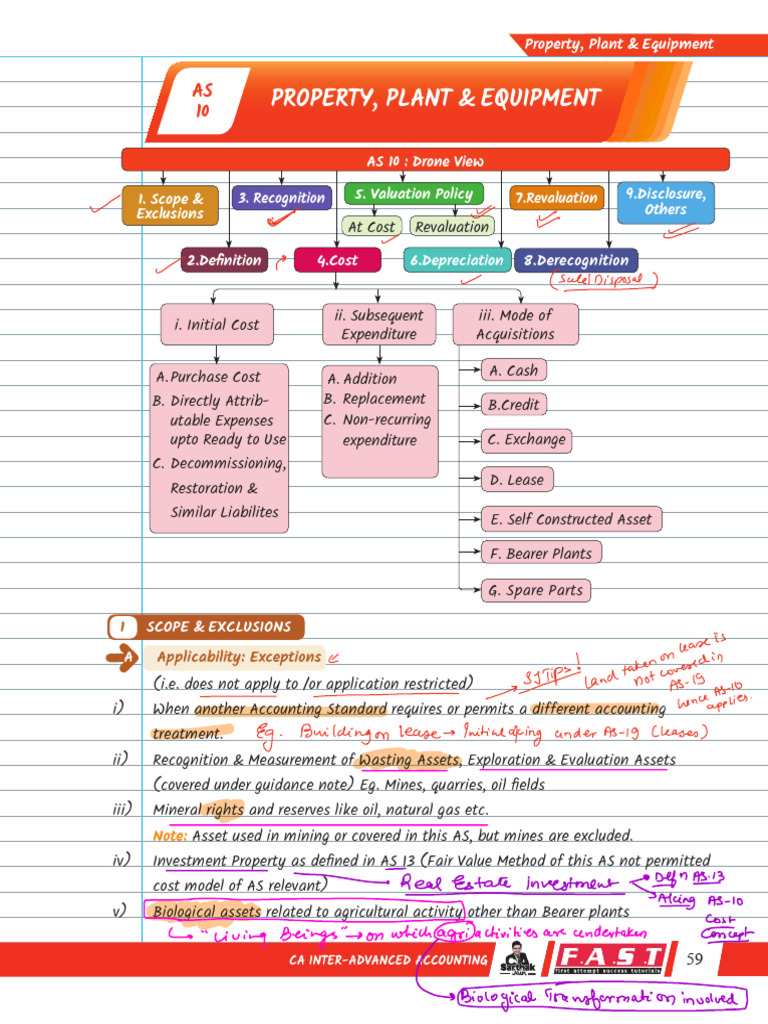 Property, Plant & Equipment
AS
10
PROPERTY, PLANT & EQUIPMENT
AS 10 : Drone View
1. Scope &
Exclusions
3. Recognition
5. Valuation Policy
7.Revaluation
9.Disclosure,
Others
At Cost
Revaluation
2.Definition
4.Cost
6.Depreciation
8.Derecognition
(Sale/Disposal)
i. Initial Cost
ii. Subsequent
Expenditure
iii. Mode of
Acquisitions
A. Purchase Cost
B. Directly Attrib-
utable Expenses
upto Ready to Use
C. Decommissioning,
Restoration &
Similar Liabilites
A. Addition
B. Replacement
C. Non-recurring
expenditure
A. Cash
B.Credit
C. Exchange
D. Lease
E. Self Constructed Asset
F. Bearer Plants
G. Spare Parts
1 SCOPE & EXCLUSIONS
A Applicability: Exceptions
(i.e. does not apply to /or application restricted)
SJ Tips!
Land taken on lease is
not covered in
AS-19
hence AS-10
applies.
i) When another Accounting Standard requires or permits a different accounting
treatment. Eg. Building on lease → Initial a/cing under AS-19 (leases)
ii) Recognition & Measurement of Wasting Assets, Exploration & Evaluation Assets
(covered under guidance note) Eg. Mines, quarries, oil fields
iii) Mineral rights and reserves like oil, natural gas etc.
Note: Asset used in mining or covered in this AS, but mines are excluded.
iv) Investment Property as defined in AS 13 (Fair Value Method of this AS not permitted
cost model of AS relevant) Real Estate investment
Defn AS-13
A/cing AS-10
Cost
Concept
v) Biological assets related to agricultural activity other than Bearer plants
"Living Beings" → on which agri activities are undertaken
CA INTER-ADVANCED ACCOUNTING
Sarthak
Jain
F.A.S.T
first attempt success tutorials
59
Biological Transformation involved